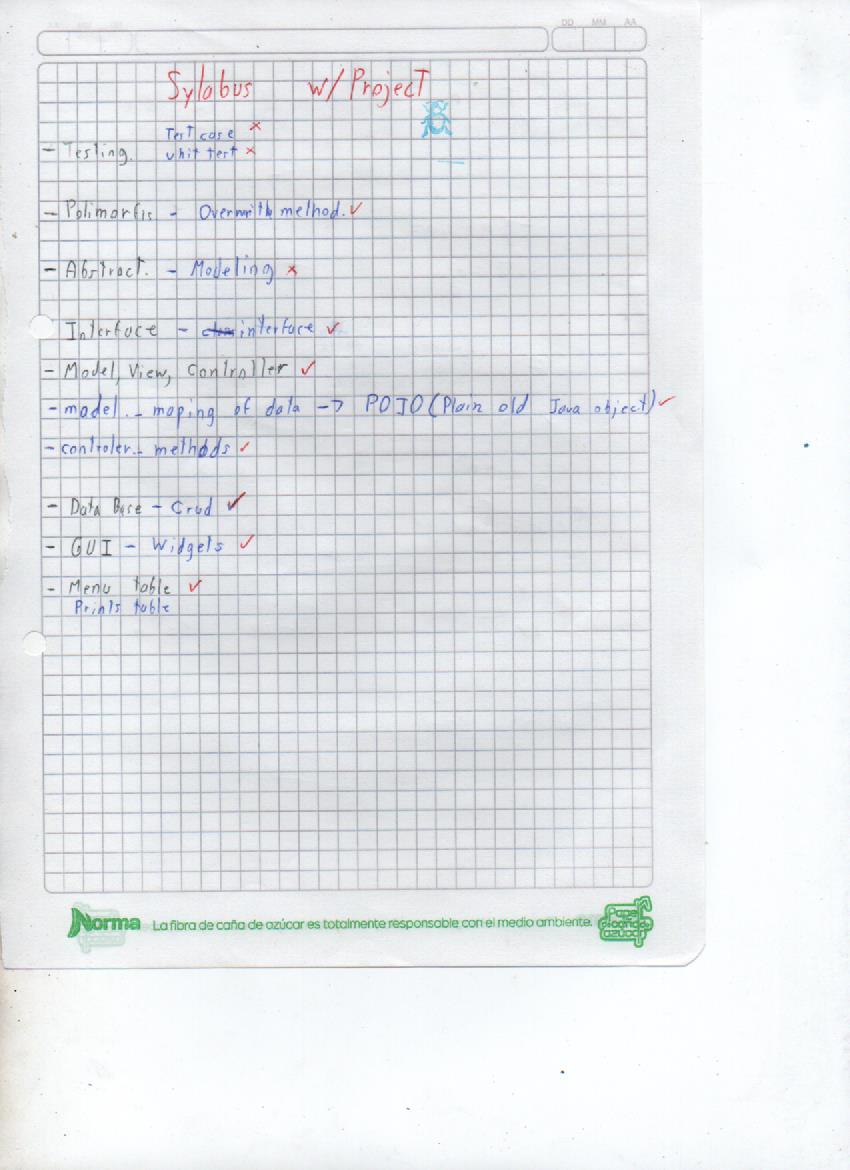 DD MM AA
Sylabus w/ Project
Test case ×
- Testing. unit test ×
- Polimorfis - Overwrith method. ✓
- Abstract. - Modeling ×
Interface - interface ✓
- Model, View, Controller ✓
- model.- maping of data -> POJO (Plain old Java object) ✓
- controler.- methods ✓
- Data Base - Crud ✓
- GUI - Widgets ✓
- Menu table ✓
Prints table
Norma La fibra de caña de azúcar es totalmente responsable con el medio ambiente.